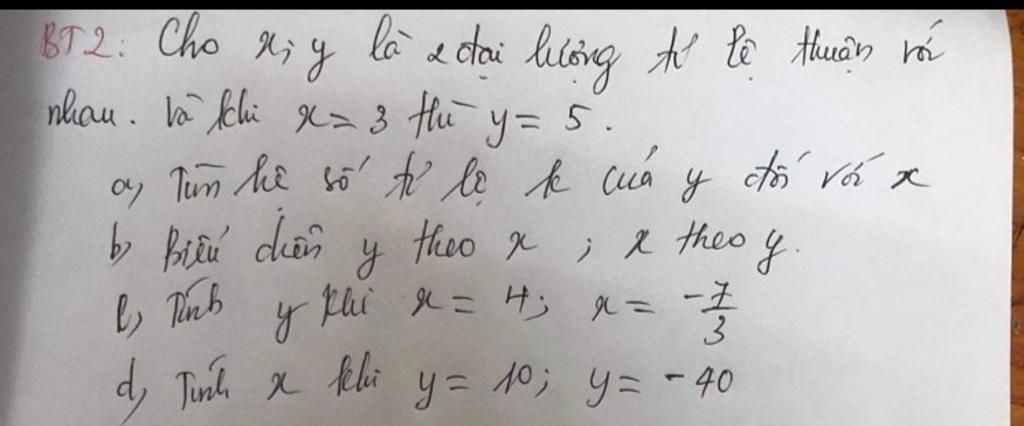 BT2: Cho x; y là 2 đại lượng tỉ lệ thuận với
nhau. Và khi x = 3 thì y = 5.
a, Tìm hệ số tỉ lệ k của y đối với x
b, Biểu diễn y theo x ; x theo y.
c, Tính y khi x = 4; x = -7/3
d, Tính x khi y = 10; y = -40